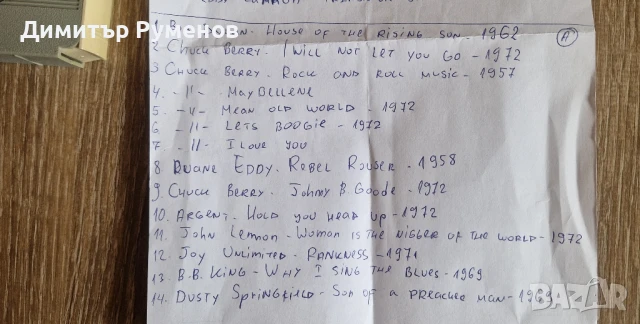 Димитър Руменов
1. B - House of the Rising Son - 1962 (A)
2. Chuck Berry. I Will Not Let You Go - 1972
3 Chuck Berry - Rock and Roll Music - 1957
4. -11- - Maybellene
5. -11- - Mean Old World - 1972
6 -11- - Lets Boogie - 1972
7 -11- - I Love You
8 Duane Eddy. Rebel Rouser. - 1958
9. Chuck Berry - Johny B Goode - 1972
10. Argent. Hold You Head Up - 1972
11. John Lennon - Woman is the Nigger of the World - 1972
12. Joy Unlimited - Rankness - 1971
13. B.B. King - Why I Sing the Blues - 1969
14. Dusty Springfield - Son of a Preacher Man - 1969
bazar